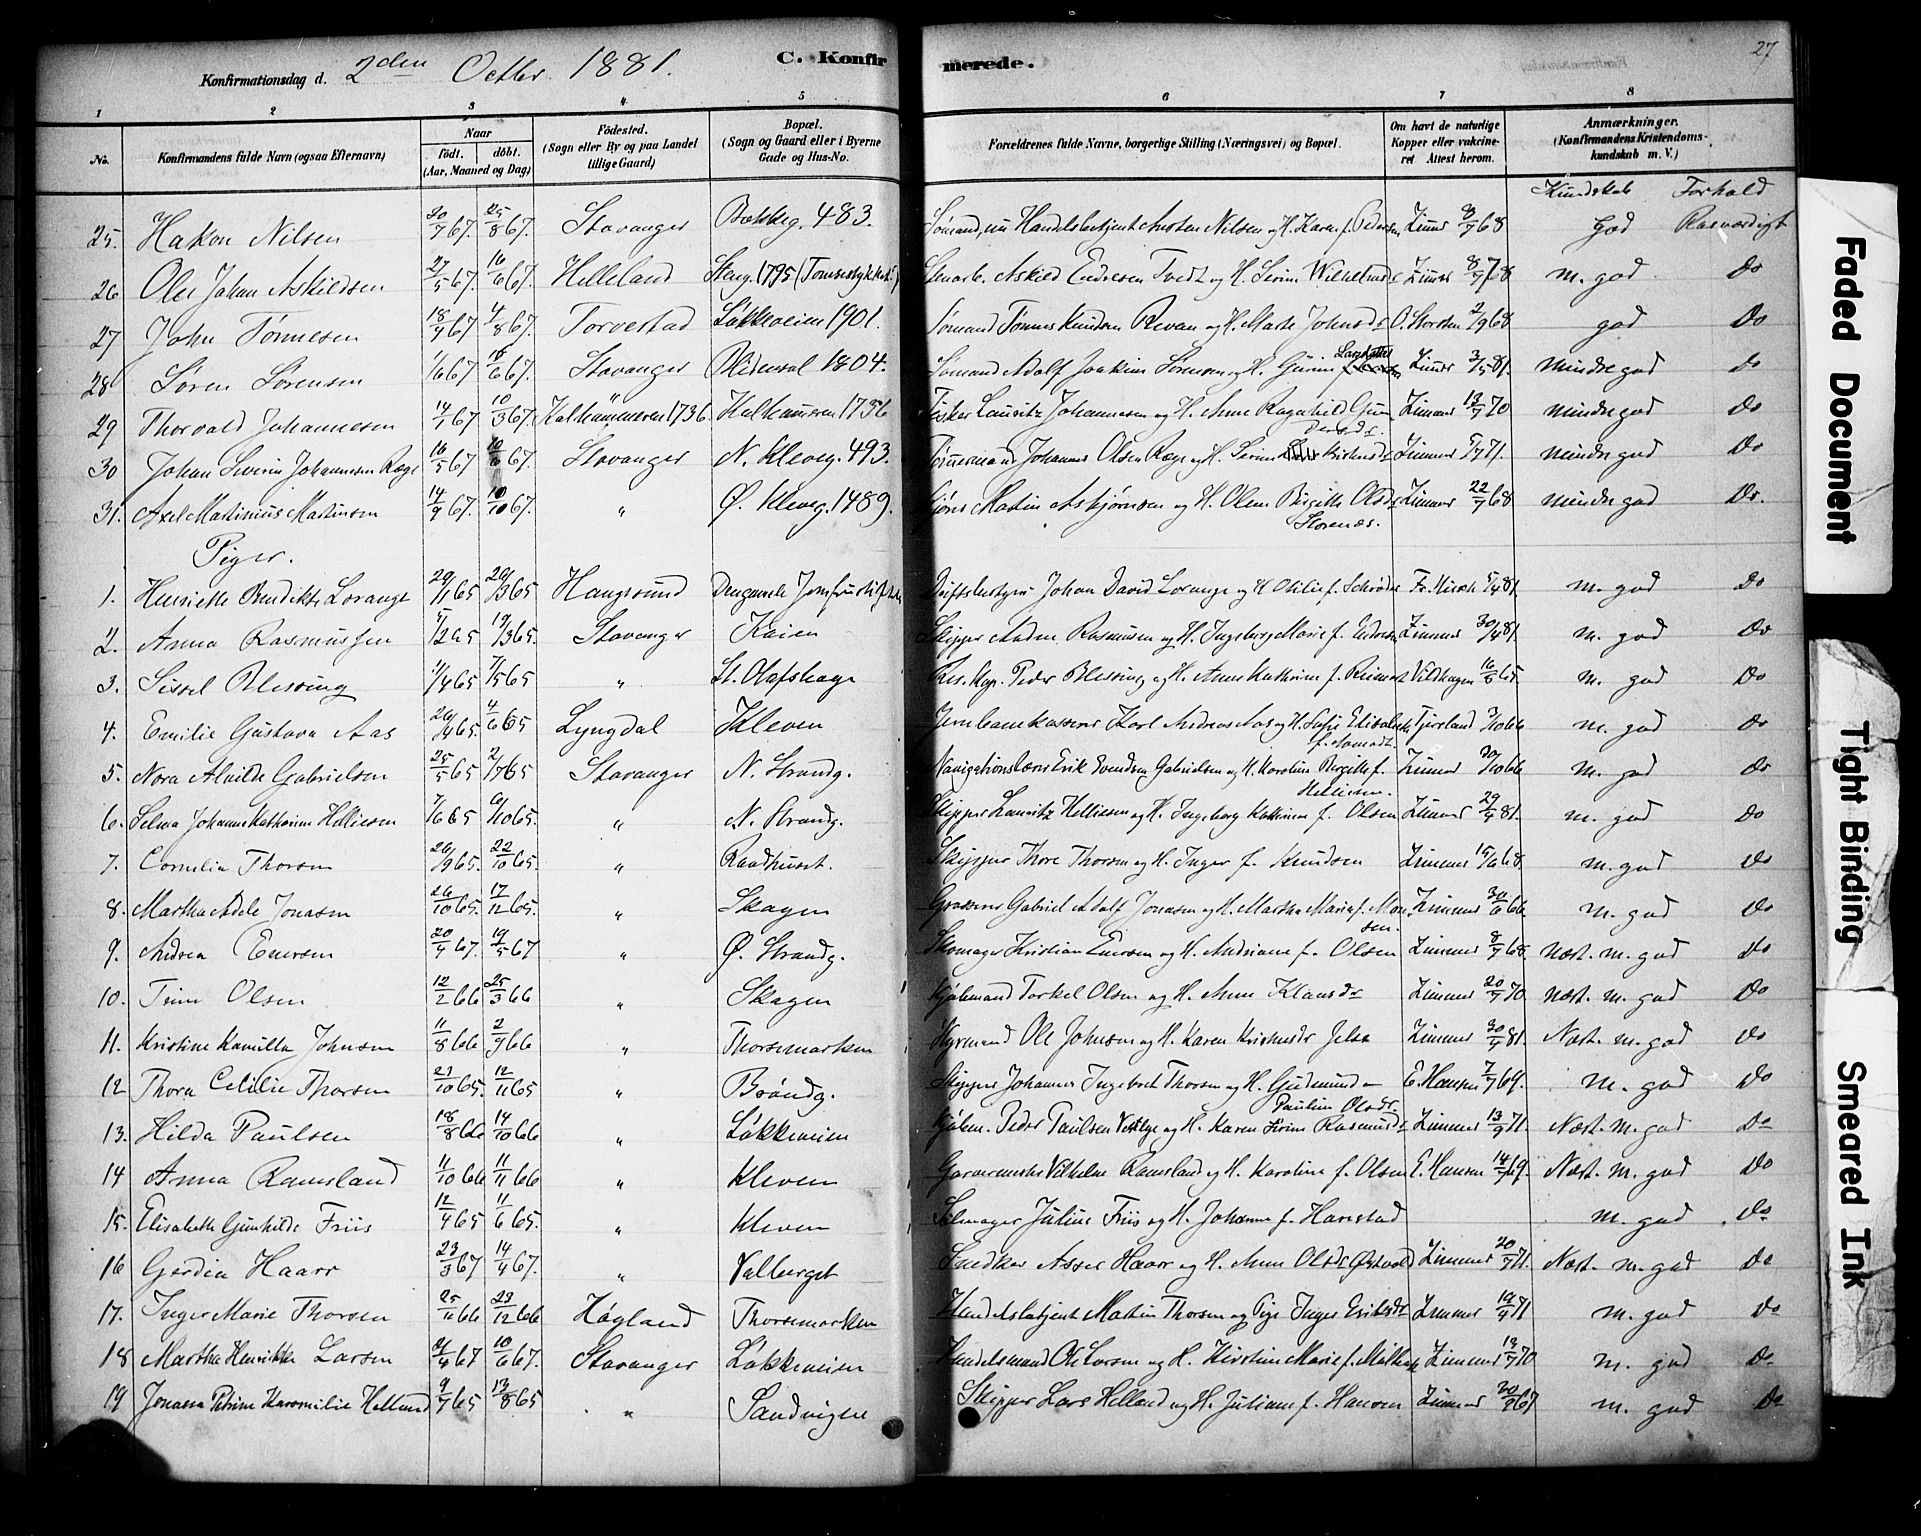 27
Konfirmationsdag d. 2den Octbr. 1881. C. Konfirmerede.
1 2 3 4 5 6 7 8
No. Konfirmandens fulde Navn (ogsaa Efternavn) Naar født. døbt. (Aar, Maaned og Dag) Fødested. (Sogn eller By og paa Landet tillige Gaard) Bopæl. (Sogn og Gaard eller i Byerne Gade og Hus-No. Forældrenes fulde Navne, borgerlige Stilling (Næringsvei) og Bopæl. Om havt de naturlige Kopper eller vakcineret Attest herom. Anmærkninger. (Konfirmandens Kristendomskundskab m. V.)
Kundskab Forhold
25. Hakon Nilsen 30/7 67. 25/8 67. Stavanger Bakkeg. 483. Sømand, nu Handelsbetjent Nilsen og H. Karen f. Pedersen Zimmer 8/7 68 god Rosværdigt
26 Ole Johan Askildsen 27/5 67. 16/6 67. Helleland Steng. 1795 Askild Endresen Tvedt og H. Serine Zimmer m. god Do
27 John Tønnesen 18/4 67 4/8 67. Torvestad Løkkeveien 1901. Sømand Tønnes Knudsen Revan og H. Marte Johnsdr 2/9 68 god Do
28 Søren Sørensen 1/6 67 16/6 67. Stavanger Bledensal 1804. Sømand Adolf Joakim Sørensen og H. Gurine Larsdatter Zimmer 3/5 81. mindre god Do
29 Thorvald Johannesen 14/1 67 10/3 67. Kalhammeren 1736 Kalhammeren 1736 Fisker Lauritz Johannesen og H. Anne Ragnhild Gundersdr. Zimmer 13/7 70 mindre god Do
30 Johan Severin Johannesen Røge 16/5 67 10/6 67. Stavanger N. Kleveg. 493. Tømmermand Johannes Olsen Røge og H. Serine Zimmer 5/7 71. mindre god Do
31. Axel Martinius Martinsen 14/9 67. 10/10 67. " Ø. Kleveg. 1489. Martin Asbjørnsen og H. Olene Birgitte Olsdr Storenæs. Zimmer 22/7 68 mindre god Do.
Piger.
1. Henriette Bendikte Lorange 29/1 65 26/3 65 Haugesund Dengamle Driftsbestyrer Johan David Lorange og H. Otilie f. Schrøder 5/4 81. m. god Do
2. Anna Rasmussen 5/2 65 19/3 65. Stavanger Kaien Skipper Rasmussen og H. Ingeborg Marie f. Zimmer 30/4 81. m. god Do
3. Sissel Blessing 11/4 65 7/5 65 " St. Olafshage Res. Kap. Peder Blessing og H. Anne Kathrine f. Reimers m. god Do
4. Emilie Gustava Aas 26/4 65. 4/6 65 Lyngdal Kleven Jernbanekasserer Karl Andreas Aas og H. Sofie Elisabeth Tjersland 3/10 66 m. god Do
5. Nora Alvilde Gabrielsen 25/5 65 2/7 65 Stavanger N. Strandg. Navigationslærer Erik Svendsen Gabrielsen og H. Karoline Birgitte f. Helliesen. Zimmer 30/10 66 m. god Do
6. Selma Johanne Kathrine Helliesen 7/6 65 6/10 65. " N. Strandg. Skipper Lauritz Helliesen og H. Ingeborg Kathrine f. Olsen Zimmer 29/4 81. m. god Do
7. Cornelia Thorsen 26/9 65. 22/10 65. " Raadhuset. Skipper Thore Thorsen og H. Inger f. Knudsen Zimmer 15/6 68. m. god Do
8. Martha Adele Jonasen 26/10 65. 17/12 65. " Skagen Grosserer Gabriel Adolf Jonasen og H. Martha Marie f. Monsen. Zimmer 30/6 66 m. god Do
9. Andrea Enersen 20/4 67. 19/5 67 " Ø. Strandg. Skomager Kristian Enersen og H. Andriane f. Olsen Zimmer 8/7 68. næst. m. god Do
10. Trine Olsen 12/2 66 25/3 66 " Skagen Kjøbmand Torkel Olsen og H. Anne Klausdr Zimmer 20/7 70. næst. m. god Do
11. Kristine Kamilla Johnsen 11/8 66 2/9 66 " Thorsemarken Hyrmand Ole Johnsen og H. Karen Jelse Zimmer 30/4 81 Næst. m. god Do
12 Thora Cecilie Thorsen 23/10 65. 12/11 65 " Brøndg. Skipper Johannes Ingebret Thorsen og H. Gudmunda Pauline Olsdr. E. Hansen 7/7 69. m. god Do
13. Hilda Paulsen 18/8 66 14/10 66 " Løkkeveien Kjøbm. Peder Paulsen og H. Karen Serine Rasmusdr Zimmer 13/9 71. Næst. m. god Do
14 Anna Ramsland 11/10 66 11/11 66 " Kleven Garvermester Vilhelm Ramsland og H. Karoline f. Olsen E. Hansen 14/7 69. Næst. m. god Do
15. Elisabeth Gunhilde Friis 12/4 65 11/6 65. " Kleven Selmager Julius Friis og H. Johanne f. Harestad m. god Do
16 Gerdia Haarr 23/3 67 14/4 67. " Valberget Snedker Asser Haarr og H. Anne Olsdr Østvold Zimmer 20/7 71. Næst. m. god Do
17. Inger Marie Thorsen 25/11 66 23/12 66 Høgland Thorsemarken Handelsbetjent Martin Thorsen og Pige Inger Eriksdr Zimmer 19/4 71 m. god Do
18 Martha Henrikke Larsen 21/4 67 10/6 67. Stavanger Løkkeveien Handelsmand Ole Larsen og H. Kirstine Marie f. Zimmer 13/7 70 m. god Do
19 Jonassa Petrine Helland 9/7 65 13/8 65 " Sandvigen Skipper Lars Helland og H. Juliane f. Hansen Zimmer m. god Do
Faded Document
Tight Binding
Smeared Ink